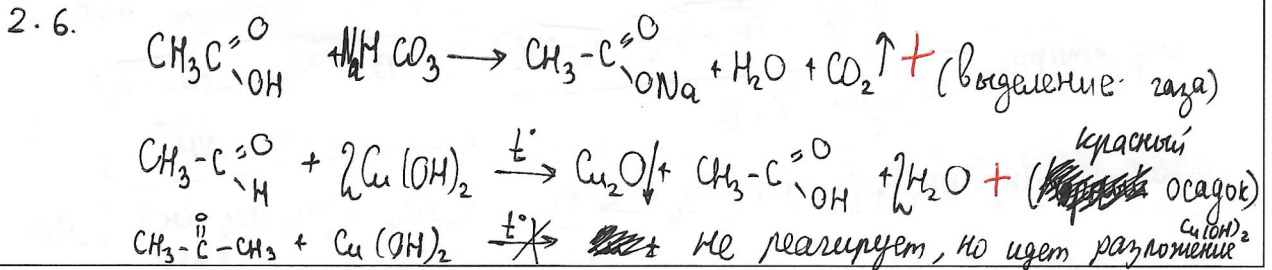 2.6.
CH₃C(=O)OH + NaHCO₃ → CH₃-C(=O)ONa + H₂O + CO₂↑ + (выделение газа)
CH₃-C(=O)H + 2Cu(OH)₂ –t°→ Cu₂O↓ + CH₃-C(=O)OH + 2H₂O + (красный осадок)
CH₃-C(=O)-CH₃ + Cu(OH)₂ –t°→ не реагирует, но идет разложение Cu(OH)₂